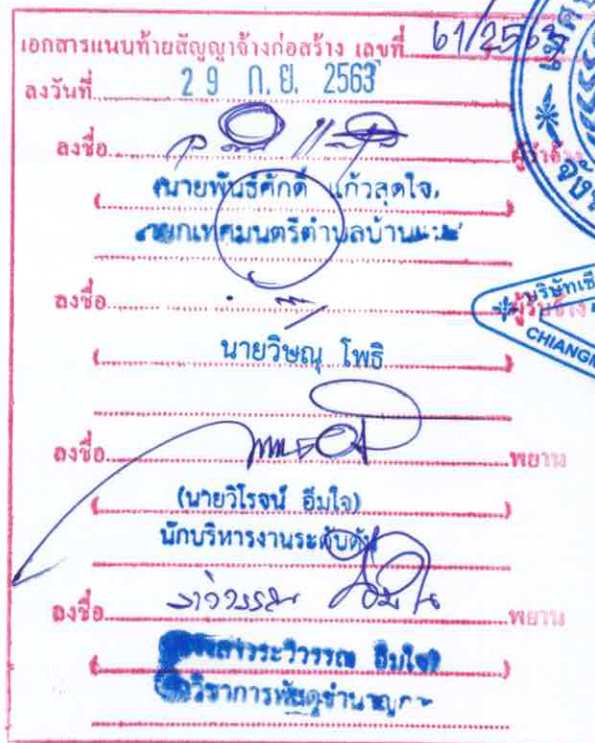 เอกสารแนบท้ายสัญญาจ้างก่อสร้าง เลขที่ 61/2563
ลงวันที่ 29 ก.ย. 2563
ลงชื่อ ผู้ว่าจ้าง
(นายพันธ์ศักดิ์ แก้วสุดใจ)
นายกเทศมนตรีตำบลบ้าน
ลงชื่อ ผู้รับจ้าง
( นายวิษณุ โพธิ )
บริษัทเชี
CHIANGM
ลงชื่อ พยาน
(นายวิโรจน์ อิ่มใจ)
นักบริหารงานระดับต้น
ลงชื่อ พยาน
ระวิวรรณ อิ่มใจ
วิชาการพัสดุชำนาญการ